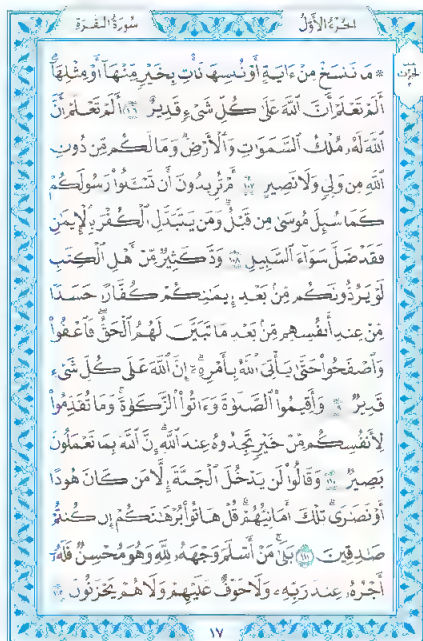 سُورَةُ البَقَرَةِ الجُزءُ الأَوَّلُ
۞ مَا نَنسَخْ مِنْ ءَايَةٍ أَوْ نُنسِهَا نَأْتِ بِخَيْرٍ مِّنْهَا أَوْ مِثْلِهَآ
أَلَمْ تَعْلَمْ أَنَّ ٱللَّهَ عَلَىٰ كُلِّ شَىْءٍ قَدِيرٌ ١٠٦ أَلَمْ تَعْلَمْ أَنَّ
ٱللَّهَ لَهُۥ مُلْكُ ٱلسَّمَٰوَٰتِ وَٱلْأَرْضِ وَمَا لَكُم مِّن دُونِ
ٱللَّهِ مِن وَلِيٍّ وَلَا نَصِيرٍ ١٠٧ أَمْ تُرِيدُونَ أَن تَسْـَٔلُوا۟ رَسُولَكُمْ
كَمَا سُئِلَ مُوسَىٰ مِن قَبْلُ وَمَن يَتَبَدَّلِ ٱلْكُفْرَ بِٱلْإِيمَٰنِ
فَقَدْ ضَلَّ سَوَآءَ ٱلسَّبِيلِ ١٠٨ وَدَّ كَثِيرٌ مِّنْ أَهْلِ ٱلْكِتَٰبِ
لَوْ يَرُدُّونَكُم مِّنۢ بَعْدِ إِيمَٰنِكُمْ كُفَّارًا حَسَدًا
مِّنْ عِندِ أَنفُسِهِم مِّنۢ بَعْدِ مَا تَبَيَّنَ لَهُمُ ٱلْحَقُّ فَٱعْفُوا۟
وَٱصْفَحُوا۟ حَتَّىٰ يَأْتِىَ ٱللَّهُ بِأَمْرِهِۦٓ إِنَّ ٱللَّهَ عَلَىٰ كُلِّ شَىْءٍ
قَدِيرٌ ١٠٩ وَأَقِيمُوا۟ ٱلصَّلَوٰةَ وَءَاتُوا۟ ٱلزَّكَوٰةَ وَمَا تُقَدِّمُوا۟
لِأَنفُسِكُم مِّنْ خَيْرٍ تَجِدُوهُ عِندَ ٱللَّهِ إِنَّ ٱللَّهَ بِمَا تَعْمَلُونَ
بَصِيرٌ ١١٠ وَقَالُوا۟ لَن يَدْخُلَ ٱلْجَنَّةَ إِلَّا مَن كَانَ هُودًا
أَوْ نَصَٰرَىٰ تِلْكَ أَمَانِيُّهُمْ قُلْ هَاتُوا۟ بُرْهَٰنَكُمْ إِن كُنتُمْ
صَٰدِقِينَ ١١١ بَلَىٰ مَنْ أَسْلَمَ وَجْهَهُۥ لِلَّهِ وَهُوَ مُحْسِنٌ فَلَهُۥٓ
أَجْرُهُۥ عِندَ رَبِّهِۦ وَلَا خَوْفٌ عَلَيْهِمْ وَلَا هُمْ يَحْزَنُونَ ١١٢
١٧